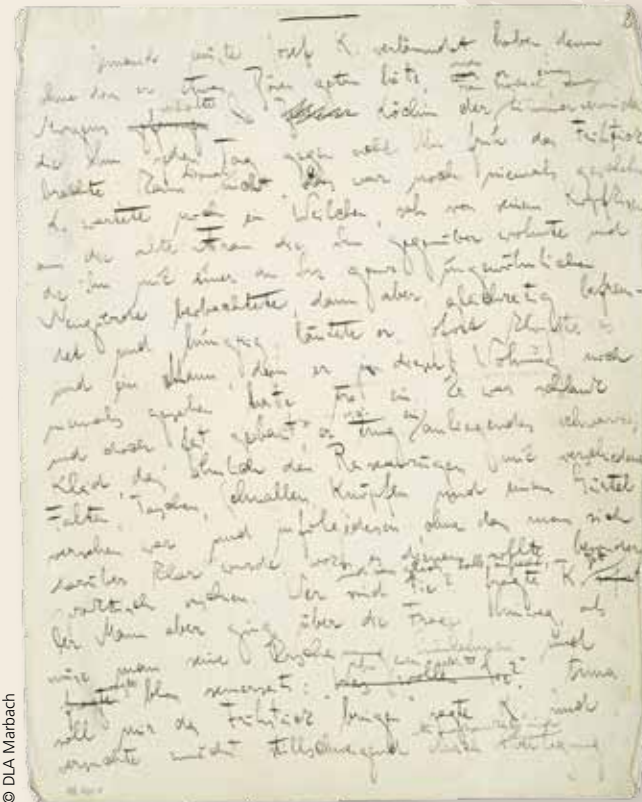 Jemand musste Josef K. verläumdet haben, denn
ohne dass er etwas Böses getan hätte,
Morgens Köchin der Zimmervermieterin
die ihm jeden Tag gegen acht Uhr früh das Frühstück
brachte kam diesmal nicht. Das war noch niemals geschehn
K. wartete noch ein Weilchen, sah von seinem Kopfkissen
aus die alte Frau die ihm gegenüber wohnte und
die ihn mit einer an ihr ganz ungewöhnlichen
Neugierde beobachtete, dann aber, gleichzeitig befrem-
det und hungrig, läutete er. Sofort klopfte es
und ein Mann, den er in dieser Wohnung noch
niemals gesehen hatte trat ein. Er war schlank
und doch fest gebaut, er trug ein anliegendes schwarzes
Kleid, das, ähnlich den Reiseanzügen mit verschiedenen
Falten, Taschen, Schnallen, Knöpfen und einem Gürtel
versehen war und infolgedessen, ohne dass man sich
darüber klar wurde, wozu es dienen sollte, besonders
praktisch erschien. Wer sind Sie? fragte K.
Der Mann aber ging über die Frage hinweg, als
müsse man seine Erscheinung hinnehmen und
sagte bloss seinerseits: Anna
soll mir das Frühstück bringen sagte K. und
versuchte zunächst stillschweigend
© DLA Marbach